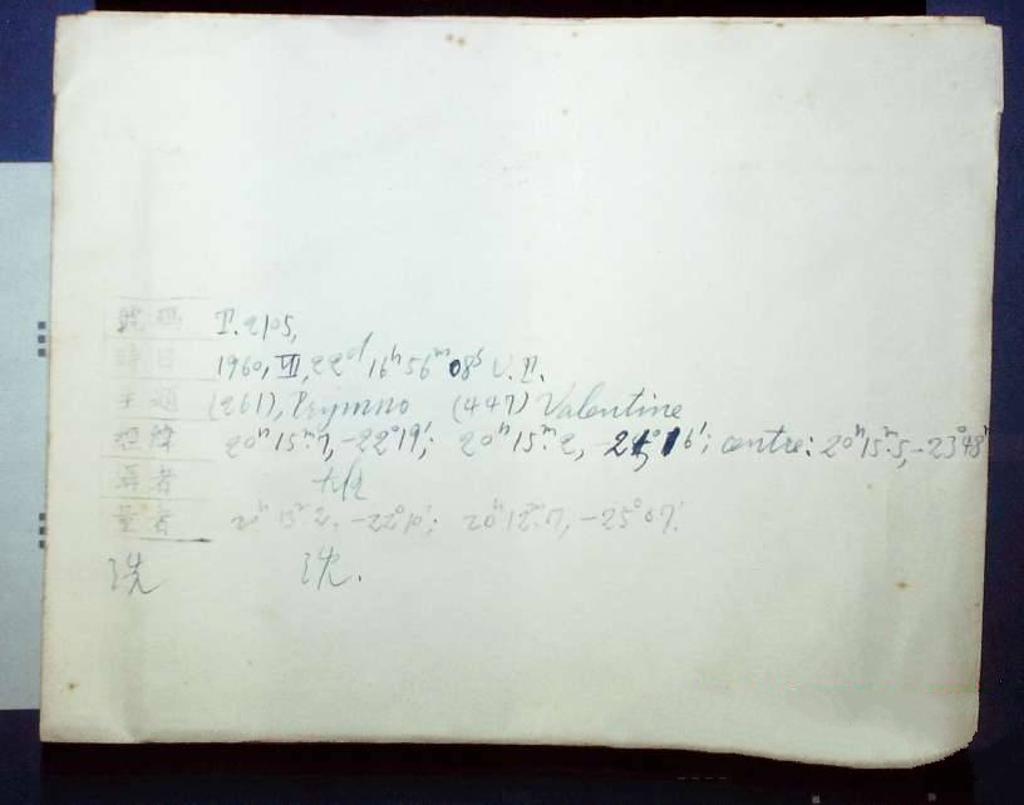 號碼 P.2105,
時日 1960, VII, 22ᵈ 16ʰ 56ᵐ 08ˢ U.T.
主題 (261), Prymno (447) Valentine
經緯 20ʰ 15ᵐ.7, -22°19'; 20ʰ 15ᵐ.2, -25°16'; centre: 20ʰ 15ᵐ.5, -23°48'
者
量者 -22°10'; 20ʰ12ᵐ.7, -25°07'.
洗 沈.